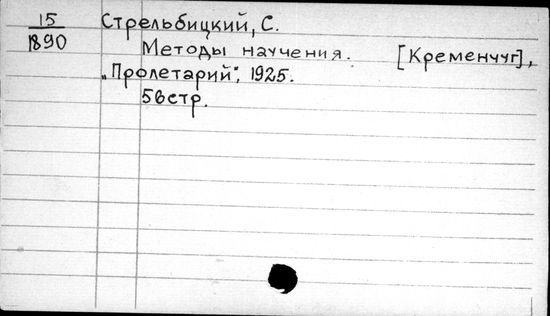 15
1890
Стрельбицкий, С.
Методы научения. [Кременчуг],
„Пролетарий", 1925.
56 стр.